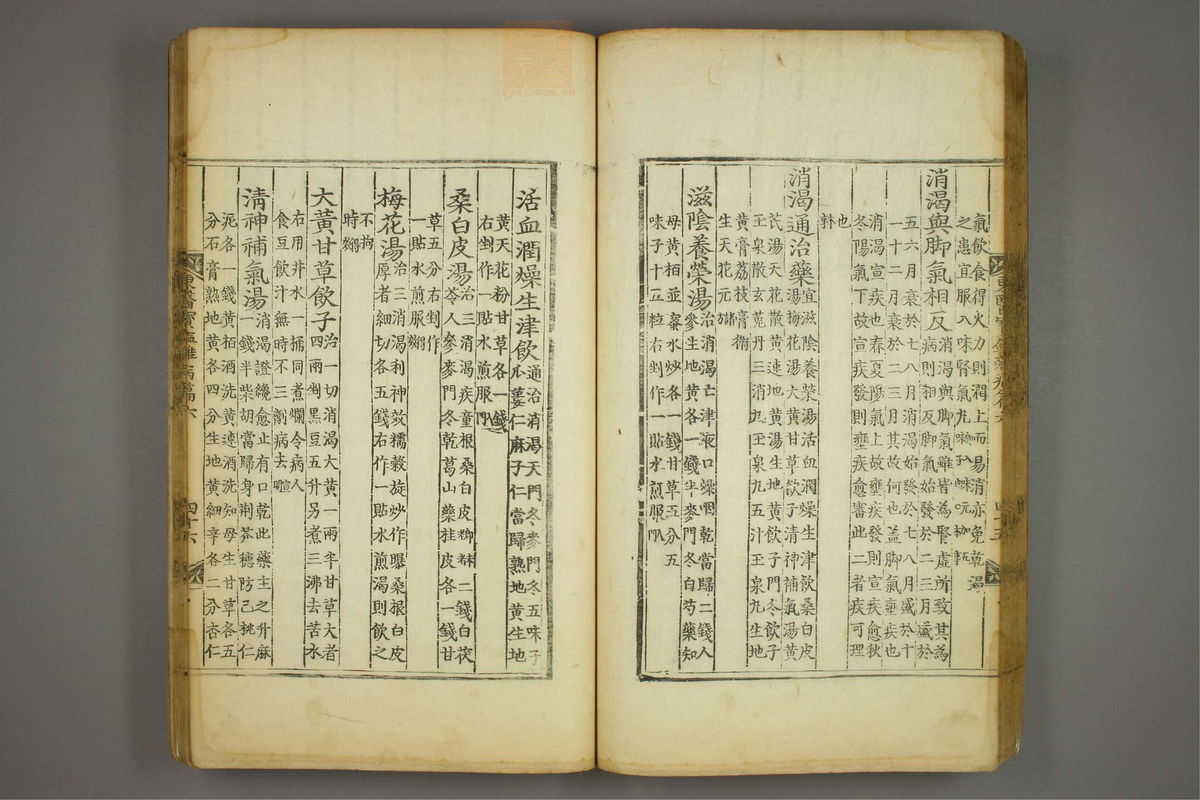 氣飲食得火力則潤上而易消亦免乾渴
之患宜服八味腎氣丸
消渴與脚氣相反
消渴與脚氣雖皆爲腎虛所致其爲
病則相反脚氣始發於二三月盛於
五六月衰於七八月消渴始發於七八月盛於十
一十二月衰於二三月其故何也盖脚氣壅疾也
消渴宣疾也春夏陽氣上故壅疾發則宣疾愈秋
冬陽氣下故宣疾發則壅疾愈審此二者疾可理
也
消渴通治藥
宜滋陰養榮湯活血潤燥生津飲桑白皮
湯梅花湯大黃甘草飲子清神補氣湯黃
芪湯天花散黃連地黃湯生地黃飲子門冬飲子
玉泉散玄菟丹三消丸玉泉丸五汁玉泉丸生地
黃膏荔枝膏
生天花元
滋陰養榮湯
治消渴亡津液口燥咽乾當歸二錢人
參生地黃各一錢半麥門冬白芍藥知
母黃栢並蜜水炒各一錢甘草五分五
味子十五粒右剉作一貼水煎服
活血潤燥生津飲
通治消渴天門冬麥門冬五味子
瓜蔞仁麻子仁當歸熟地黃生地
黃天花粉甘草各一錢
右剉作一貼水煎服
桑白皮湯
治三消渴疾童根桑白皮二錢白茯
苓人參麥門冬乾葛山藥桂皮各一錢甘
草五分右剉作
一貼水煎服
梅花湯
治三消渴利神效糯穀旋炒作爆桑根白皮
厚者細切各五錢右作一貼水煎渴則飲之
不拘
時
大黃甘草飲子
治一切消渴大黃一兩半甘草大者
四兩剉黑豆五升另煮三沸去苦水
右用井水一桶同煮爛令病人
食豆飲汁無時不三劑病去
清神補氣湯
消渴證纔愈止有口乾此藥主之升麻
一錢半柴胡當歸身荊芥穗防己桃仁
泥各一錢黃栢酒洗黃連酒洗知母生甘草各五
分石膏熟地黃各四分生地黃細辛各二分杏仁